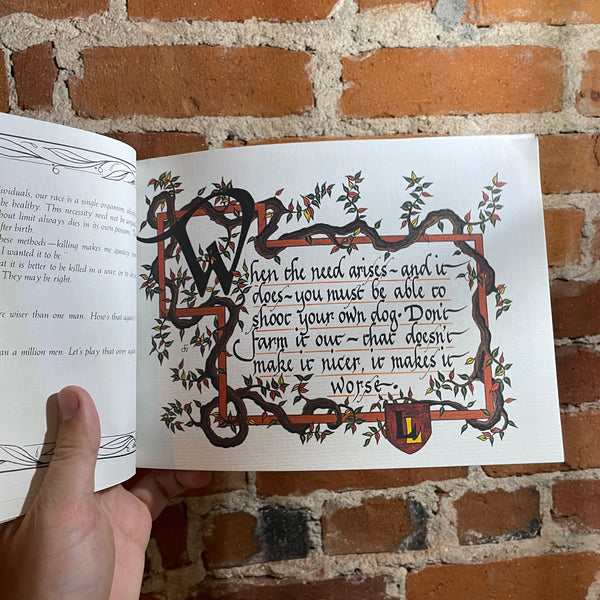 ividuals, our race is a single organism, always
be healthy. This necessity need not be
out limit always dies in its own poisons
fter birth.
hese methods—killing makes me queasy
I wanted it to be.
at it is better to be killed in a war, or to die
They may be right.
re wiser than one man. How's that again?
an a million men. Let's play that over again
When the need arises ~ and it
does ~ you must be able to
shoot your own dog. Don't
farm it out ~ that doesn't
make it nicer, it makes it
worse.
LL